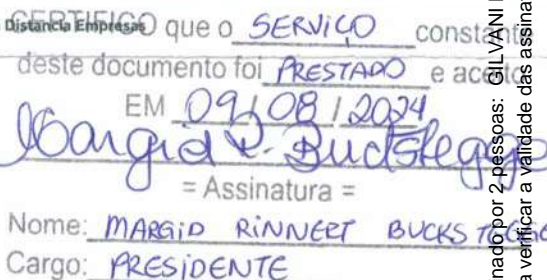 Distancia Empresas
CERTIFICO que o SERVIÇO constante
deste documento foi PRESTADO e aceito
EM 09/08/2024
Margid R. Buckstegge
= Assinatura =
Nome: MARGID RINNERT BUCKSTEGGE
Cargo: PRESIDENTE
nado por 2 pessoas: GILVANI
a verificar a validade das assinat